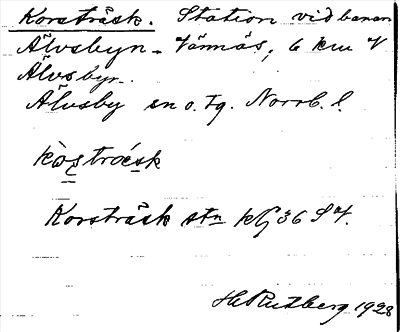 Korsträsk. Station vid banan
Älvsbyn - Jörnäs, 6 km V
Älvsbyn.
Älvsby sn o. tg. Norrb. l.
Korsträsk stn kbl 36 S
H. Rutberg 1928